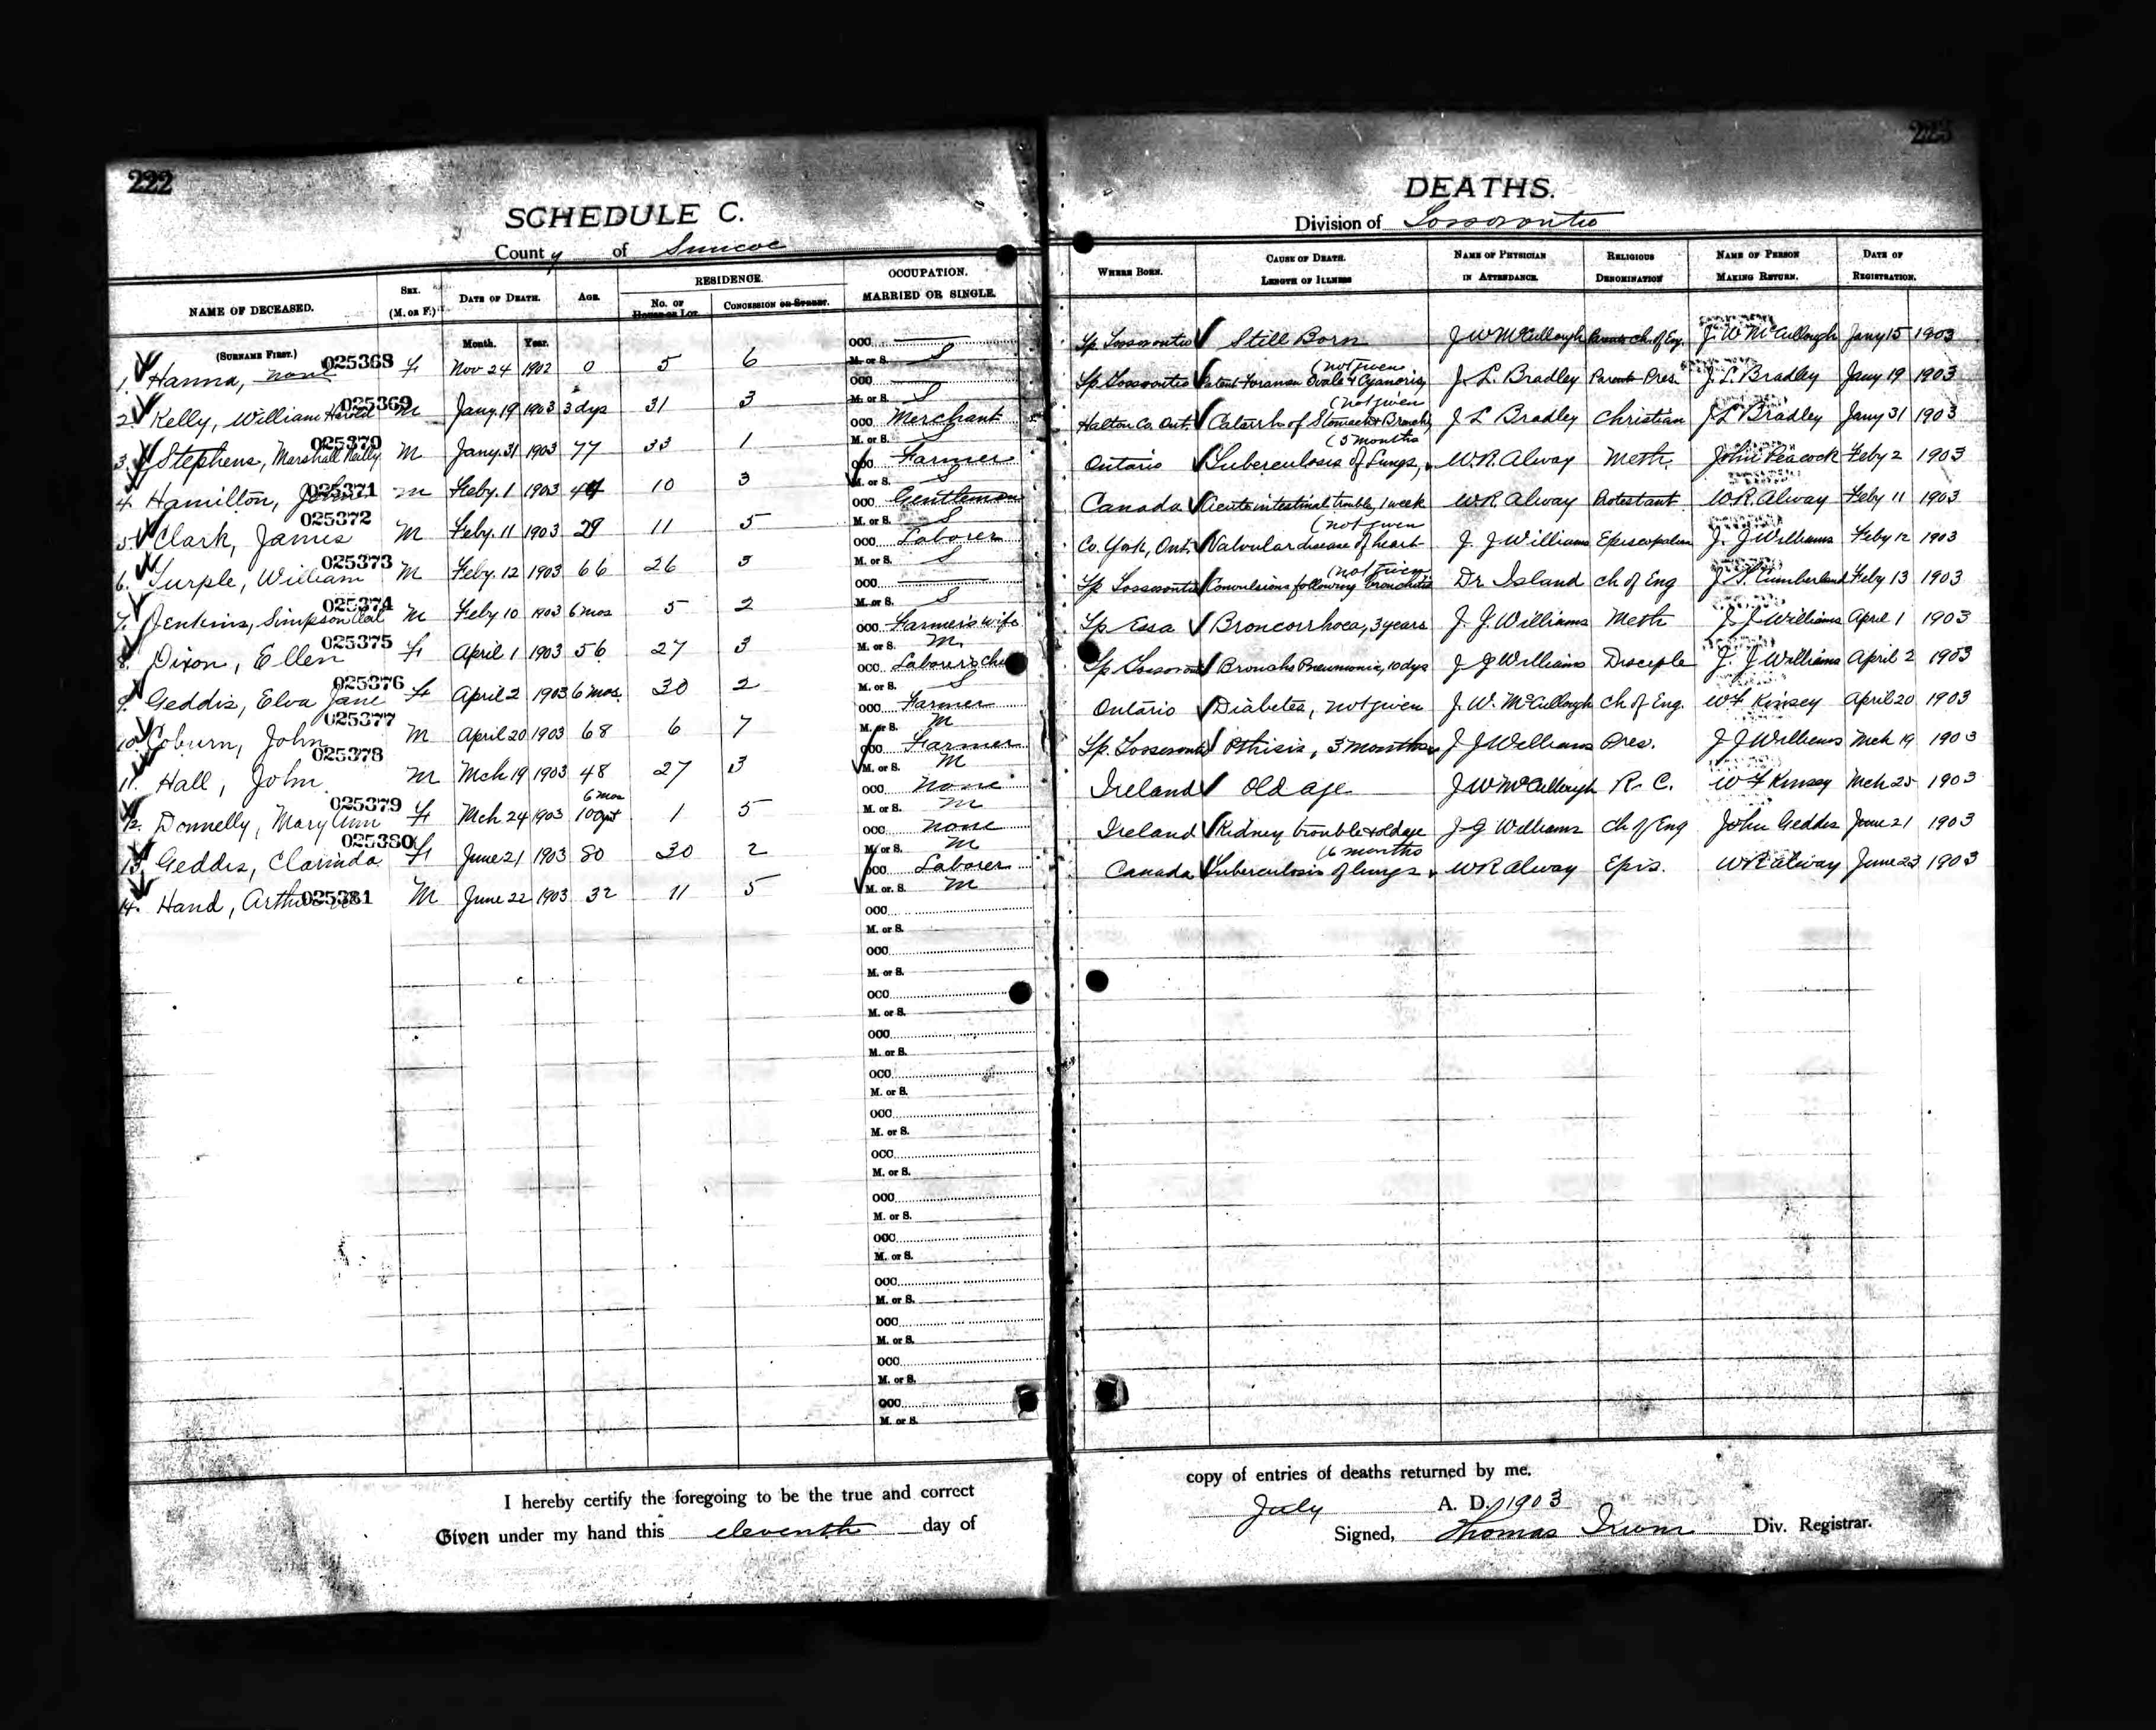 222
SCHEDULE C.
County of Simcoe
NAME OF DECEASED.
(SURNAME FIRST.)
SEX. (M. OR F.)
DATE OF DEATH.
Month. Year.
AGE.
RESIDENCE.
NO. OR HOUSE OR LOT
CONCESSION OR STREET.
OCCUPATION.
MARRIED OR SINGLE.
025368
1. Hanna, none F Nov 24 1902 0 5 6 OCC. M. or S. S
025369
2. Kelly, William Harold M Jany. 19 1903 3 dys 31 3 OCC. M. or S. S
025370
3. Stephens, Marshall Reilly M Jany. 31 1903 77 33 1 OCC. Merchant M. or S. S
025371
4. Hamilton, John M Feby. 1 1903 44 10 3 OCC. Farmer M. or S. S
025372
5. Clark, James M Feby. 11 1903 29 11 5 OCC. Gentleman M. or S. S
025373
6. Turple, William M Feby. 12 1903 66 26 3 OCC. Laborer M. or S. S
025374
7. Jenkins, Simpson M Feby 10 1903 6 mos 5 2 OCC. M. or S. S
025375
8. Dixon, Ellen F April 1 1903 56 27 3 OCC. Farmer's wife M. or S. M
025376
9. Geddis, Elva Jane F April 2 1903 6 mos. 30 2 OCC. Labourer's M. or S. S
025377
10. Coburn, John M April 20 1903 68 6 7 OCC. Farmer M. or S. M
025378
11. Hall, John M Mch 19 1903 48 27 3 OCC. Farmer M. or S. M
025379
12. Donnelly, Mary Ann F Mch 24 1903 6 mos 100 1 5 OCC. none M. or S. M
025380
13. Geddis, Clarinda F June 21 1903 80 30 2 OCC. none M. or S. M
025381
14. Hand, Arthur M June 22 1903 32 11 5 OCC. Laborer M. or S. M
OCC.
M. or S.
OCC.
M. or S.
OCC.
M. or S.
OCC.
M. or S.
OCC.
M. or S.
OCC.
M. or S.
OCC.
M. or S.
OCC.
M. or S.
OCC.
M. or S.
OCC.
M. or S.
OCC.
M. or S.
OCC.
M. or S.
OCC.
M. or S.
I hereby certify the foregoing to be the true and correct
Given under my hand this eleventh day of
223
DEATHS.
Division of Tossorontio
WHERE BORN.
CAUSE OF DEATH.
LENGTH OF ILLNESS
NAME OF PHYSICIAN
IN ATTENDANCE.
RELIGIOUS
DENOMINATION
NAME OF PERSON
MAKING RETURN.
DATE OF
REGISTRATION.
Tp. Tossorontio Still Born J W McCullough Parents ch. of Eng. J. W. McCullough Jany 15 1903
Tp. Tossorontio Patent Foramen Ovale & Cyanosis (not given J. L. Bradley Parents Pres. J. L. Bradley Jany 19 1903
Halton Co. Ont. Catarrh of Stomach & Bronchi (not given J L Bradley Christian J L Bradley Jany 31 1903
Ontario Tuberculosis of Lungs, (5 months W. R. Alway Meth. John Peacock Feby 2 1903
Canada Acute intestinal trouble, 1 week W R Alway Protestant W. R. Alway Feby 11 1903
Co. York, Ont. Valvular disease of heart (not given J. J Williams Episcopalian J. J Williams Feby 12 1903
Tp. Tossorontio Convulsions following bronchitis (not given Dr Island ch of Eng J. T. Cumberland Feby 13 1903
Tp Essa Broncorrhoea, 3 years J. J. Williams Meth J. J Williams April 1 1903
Tp Tossorontio Broncho Pneumonia, 10 dys J J Williams Disciple J. J Williams April 2 1903
Ontario Diabetes, not given J. W. McCullough Ch of Eng. W F Kinsey April 20 1903
Tp. Tossorontio Pthisis, 3 months J J Williams Pres. J J Williams Mch 19 1903
Ireland Old age J W McCullough R. C. W F Kinsey Mch 25 1903
Ireland Kidney trouble & old age J J Williams Ch of Eng John Geddis June 21 1903
Canada Tuberculosis of lungs (6 months W R Alway Epis. W R Alway June 23 1903
copy of entries of deaths returned by me.
July A. D. 1903
Signed, Thomas Irwin Div. Registrar.